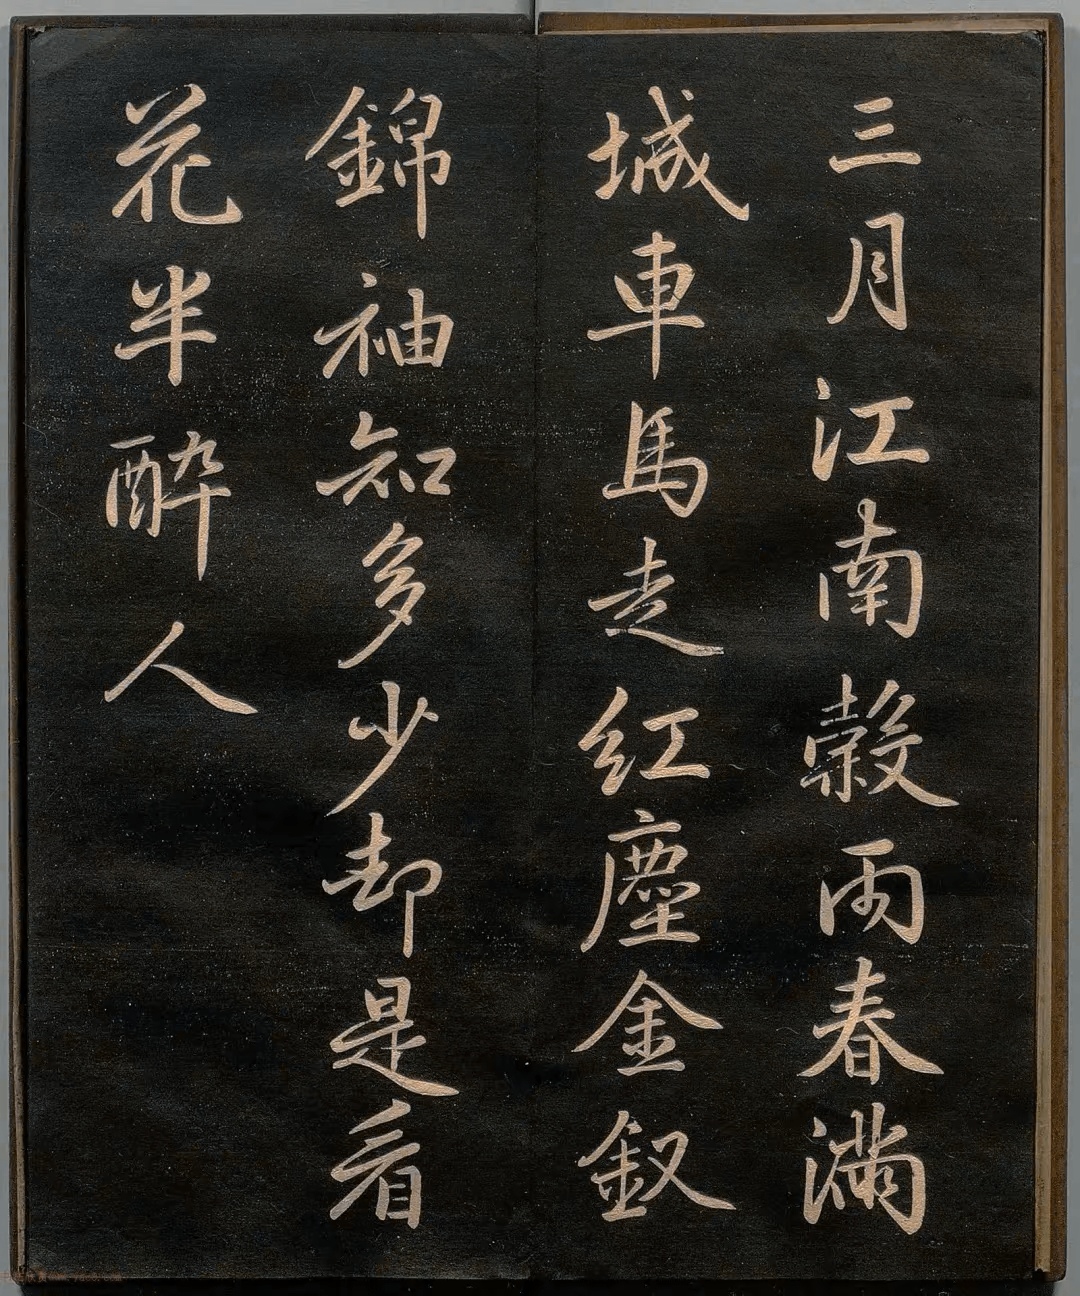 三月江南穀雨春滿
城車馬走紅塵金釵
錦袖知多少却是看
花半醉人